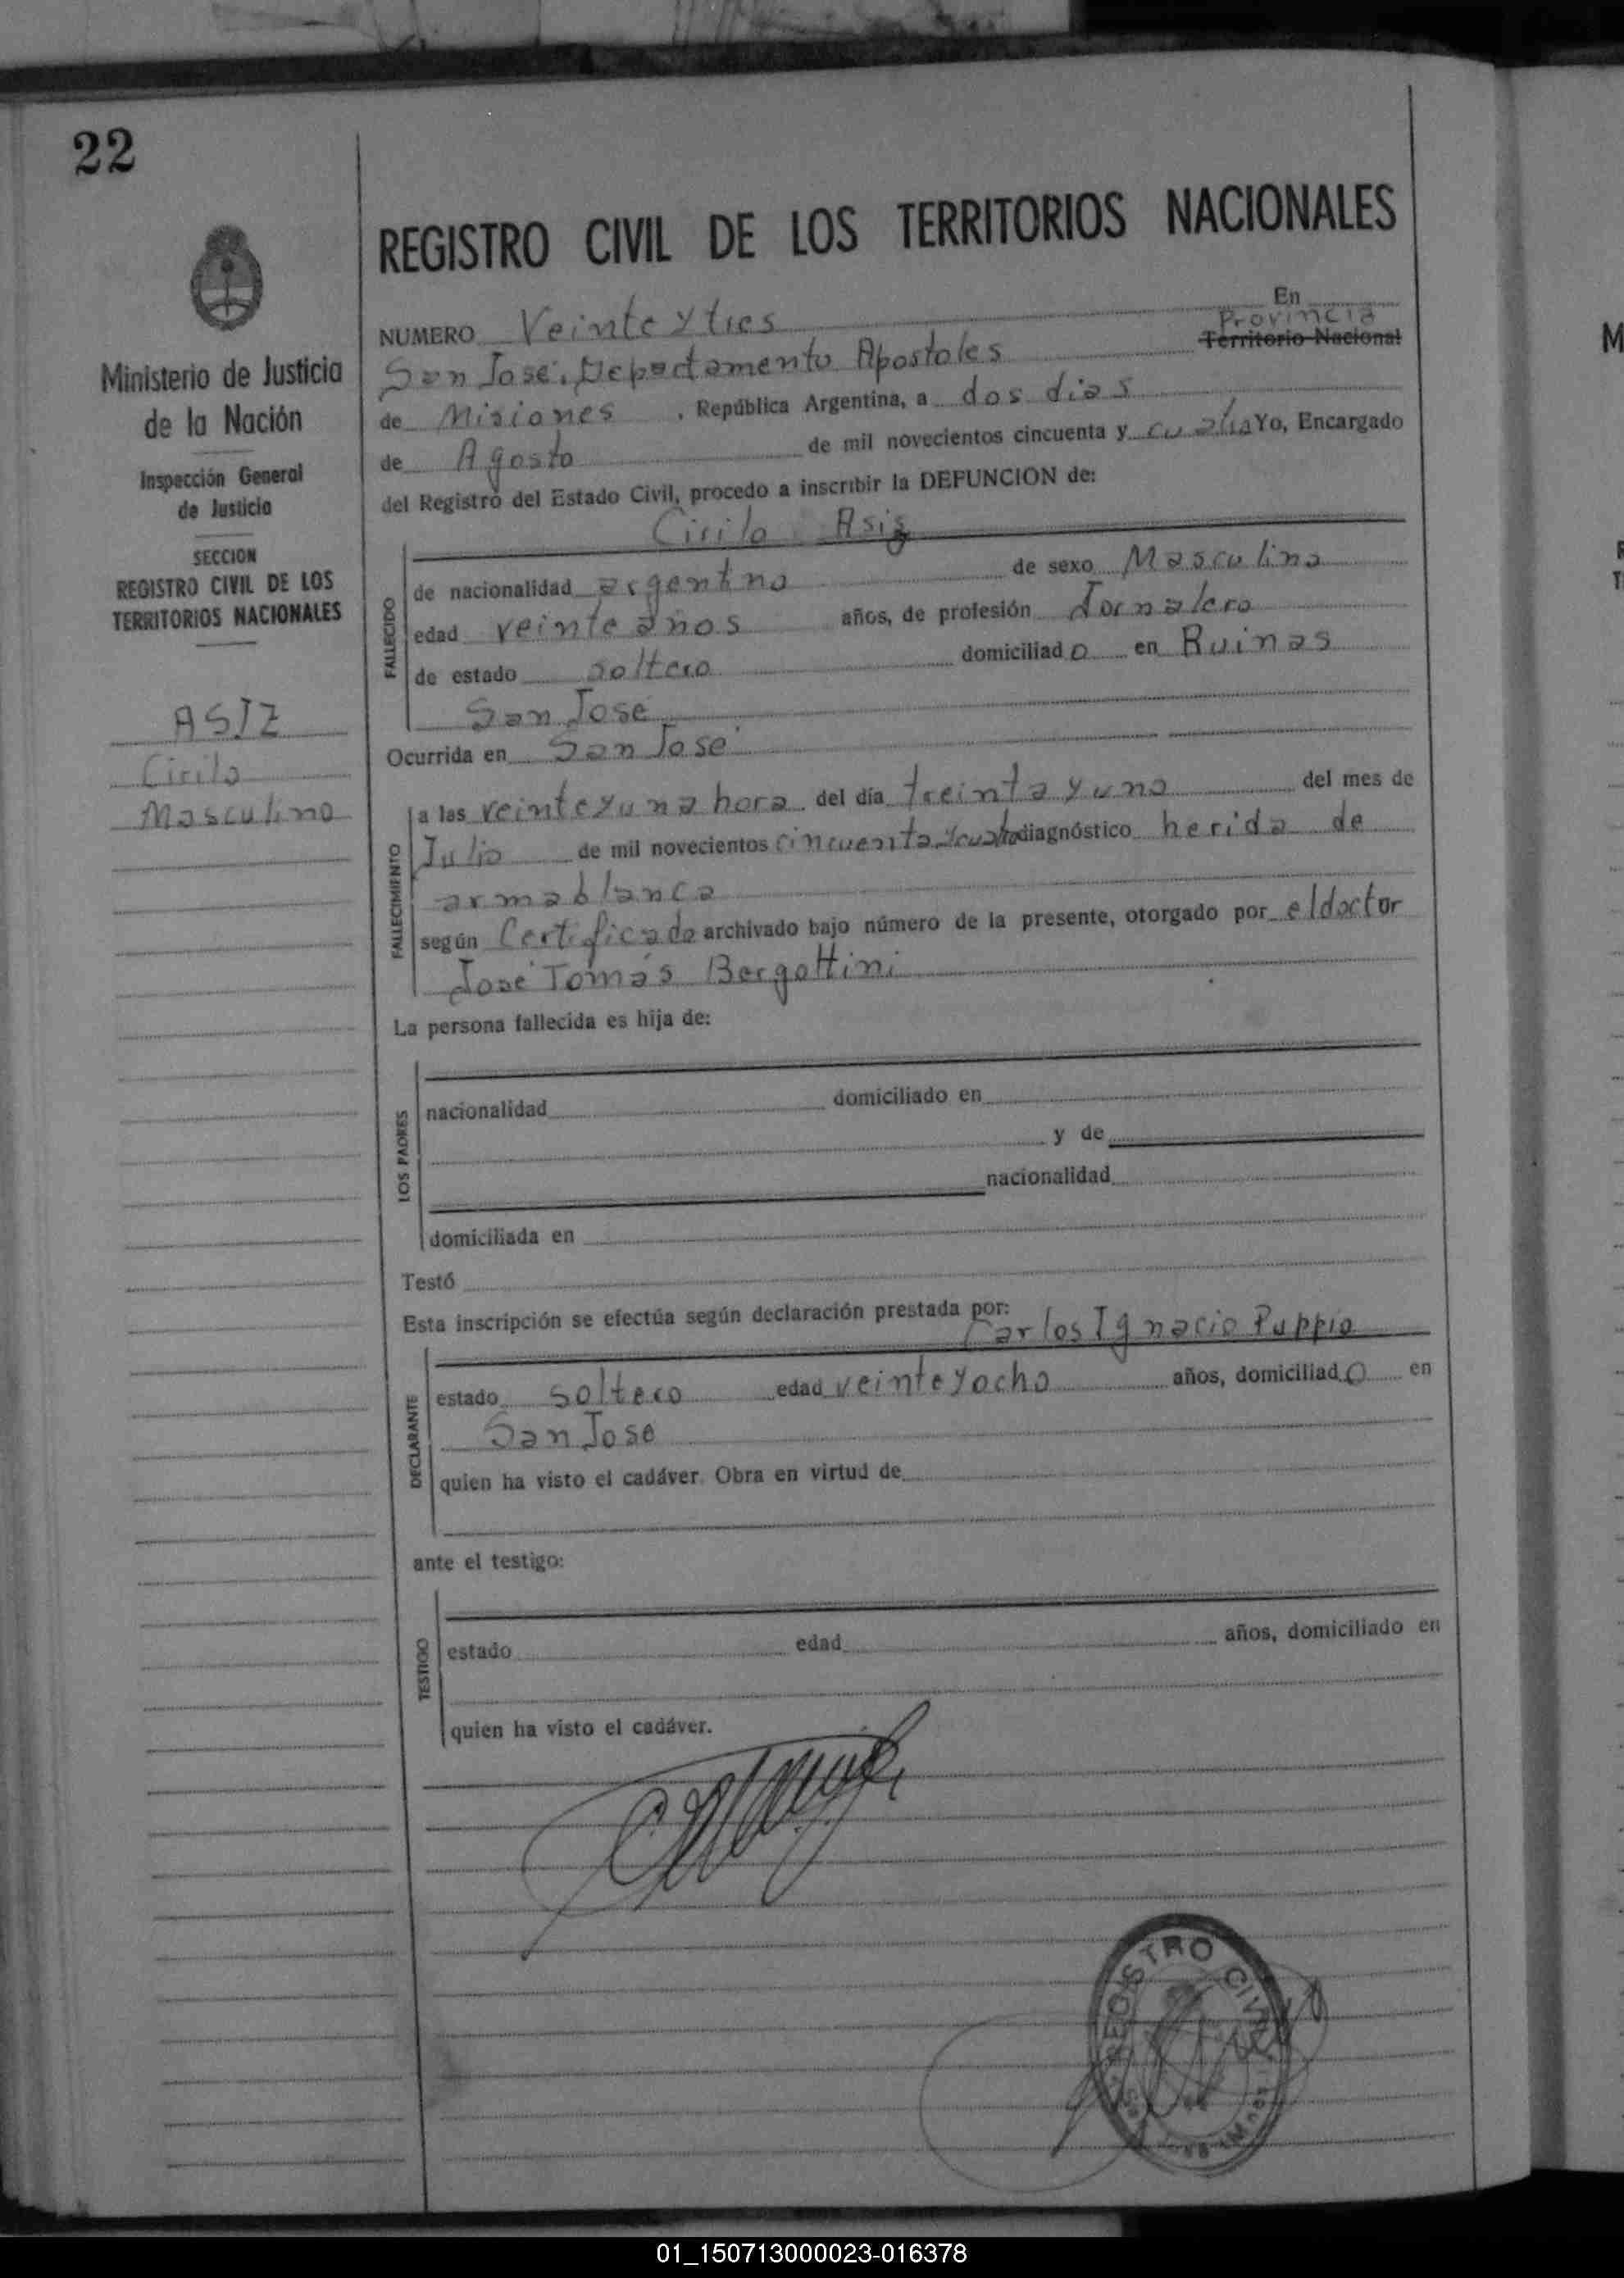 22
REGISTRO CIVIL DE LOS TERRITORIOS NACIONALES
Ministerio de Justicia
de la Nación
Inspección General
de Justicia
SECCION
REGISTRO CIVIL DE LOS
TERRITORIOS NACIONALES
ASIZ
Cirilo
Masculino
NUMERO Veinte y tres En
San José, Departamento Apostoles Provincia Territorio Nacional
de Misiones , República Argentina, a dos dias
de Agosto de mil novecientos cincuenta y cuatro Yo, Encargado
del Registro del Estado Civil, procedo a inscribir la DEFUNCION de:
Cirilo Asiz
FALLECIDO
de nacionalidad argentino de sexo Masculino
edad veinte años años, de profesión Jornalero
de estado soltero domiciliado en Ruinas
San José
Ocurrida en San José
FALLECIMIENTO
a las veinte y una hora del día treinta y uno del mes de
Julio de mil novecientos cincuenta y cuatro diagnóstico herida de
arma blanca
según Certificado archivado bajo número de la presente, otorgado por el doctor
José Tomás Bergottini
La persona fallecida es hija de:
LOS PADRES
nacionalidad domiciliado en
y de
nacionalidad
domiciliada en
Testó
Esta inscripción se efectúa según declaración prestada por:
Carlos Ignacio Puppio
DECLARANTE
estado soltero edad veinte y ocho años, domiciliado en
San José
quien ha visto el cadáver. Obra en virtud de
ante el testigo:
TESTIGO
estado edad años, domiciliado en
quien ha visto el cadáver.
REGISTRO CIVIL
01_150713000023-016378